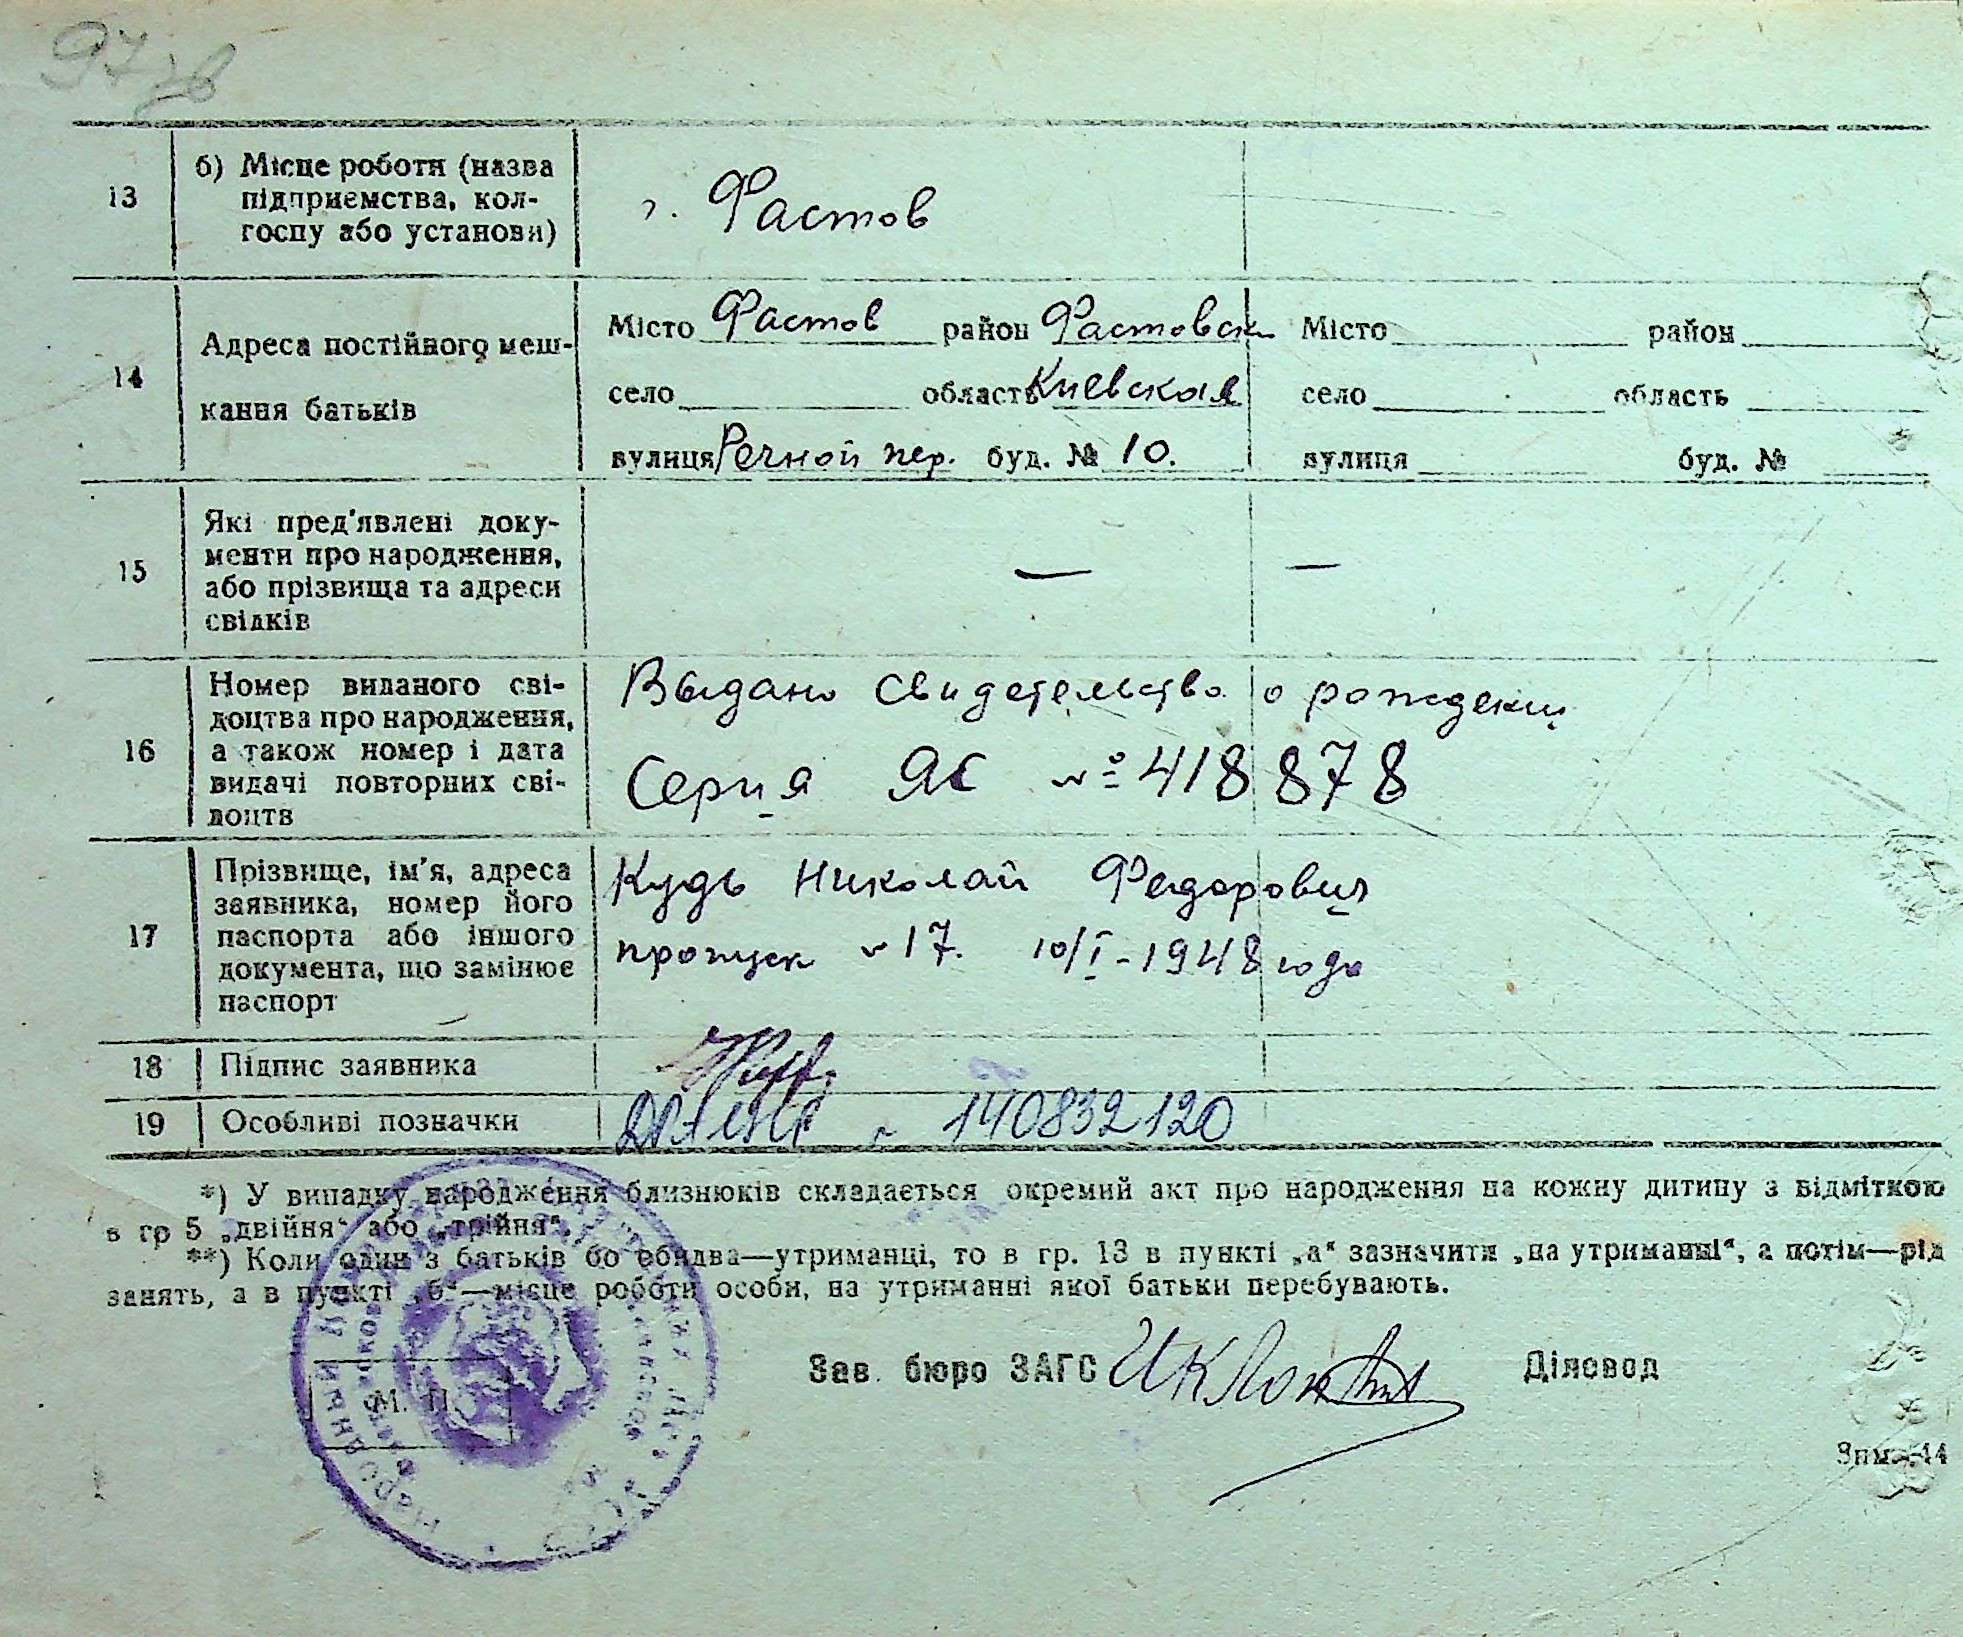 97 зв
13
б) Місце роботи (назва
підприємства, кол-
госпу або установи)
г. Фастов
14
Адреса постійного меш-
кання батьків
Місто Фастов район Фастовск
село область Киевская
вулиця Речной пер. буд. № 10.
Місто район
село область
вулиця буд. №
15
Які пред'явлені доку-
менти про народження,
або прізвища та адреси
свідків
— —
16
Номер виданого сві-
доцтва про народження,
а також номер і дата
видачі повторних сві-
доцтв
Выдано свидетельство о рождении
Серия ЯС № 418878
17
Прізвище, ім'я, адреса
заявника, номер його
паспорта або іншого
документа, що замінює
паспорт
Кудь Николай Федорович
пропуск № 17. 10/I-1948 года
18
Підпис заявника
19
Особливі позначки
140832120
*) У випадку народження близнюків складається окремий акт про народження на кожну дитину з відміткою
в гр 5 „двійня“ або „трійня“.
**) Коли один з батьків бо обидва—утриманці, то в гр. 13 в пункті „а“ зазначити „на утриманні“, а потім—рід
занять, а в пункті „б“—місце роботи особи, на утриманні якої батьки перебувають.
Зав. бюро ЗАГС
Діловод
М. П.